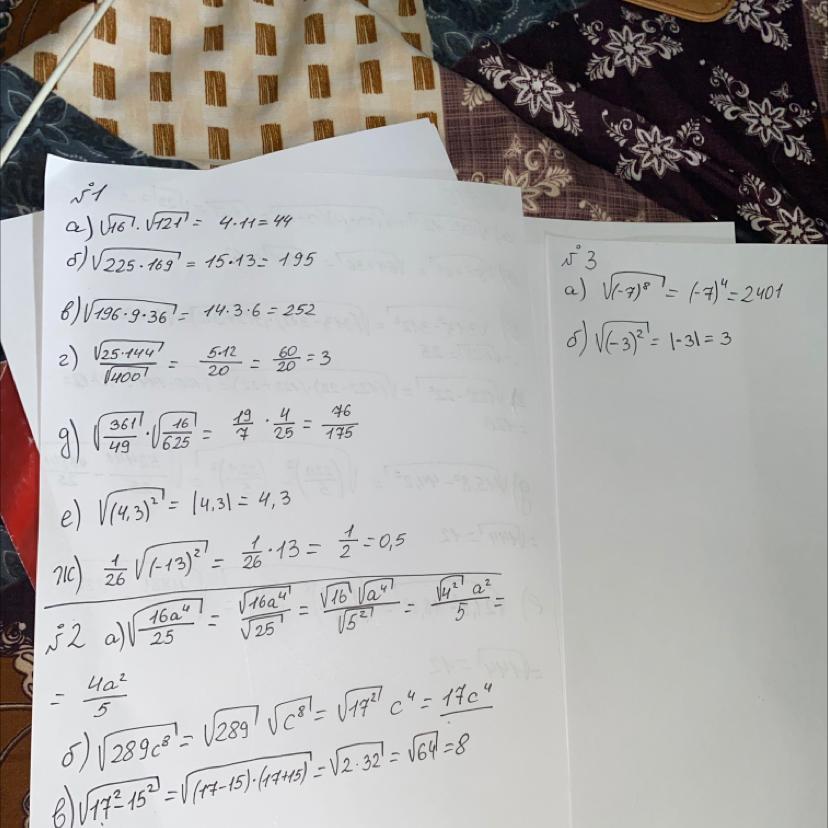 №1
а) √16 · √121 = 4·11 = 44
б) √(225·169) = 15·13 = 195
в) √(196·9·36) = 14·3·6 = 252
г) √(25·144)/√400 = 5·12/20 = 60/20 = 3
д) √(361/49) · √(16/625) = 19/7 · 4/25 = 76/175
е) √(4,3)² = |4,3| = 4,3
ж) 1/26 √(-13)² = 1/26 · 13 = 1/2 = 0,5
№2 а) √(16a⁴/25) = √(16a⁴)/√25 = √16 √a⁴/√5² = √4² a²/5 =
= 4a²/5
б) √(289c⁸) = √289 √c⁸ = √17² c⁴ = 17c⁴
в) √(17²-15²) = √((17-15)·(17+15)) = √(2·32) = √64 = 8
№3
а) √(-7)⁸ = (-7)⁴ = 2401
б) √(-3)² = |-3| = 3